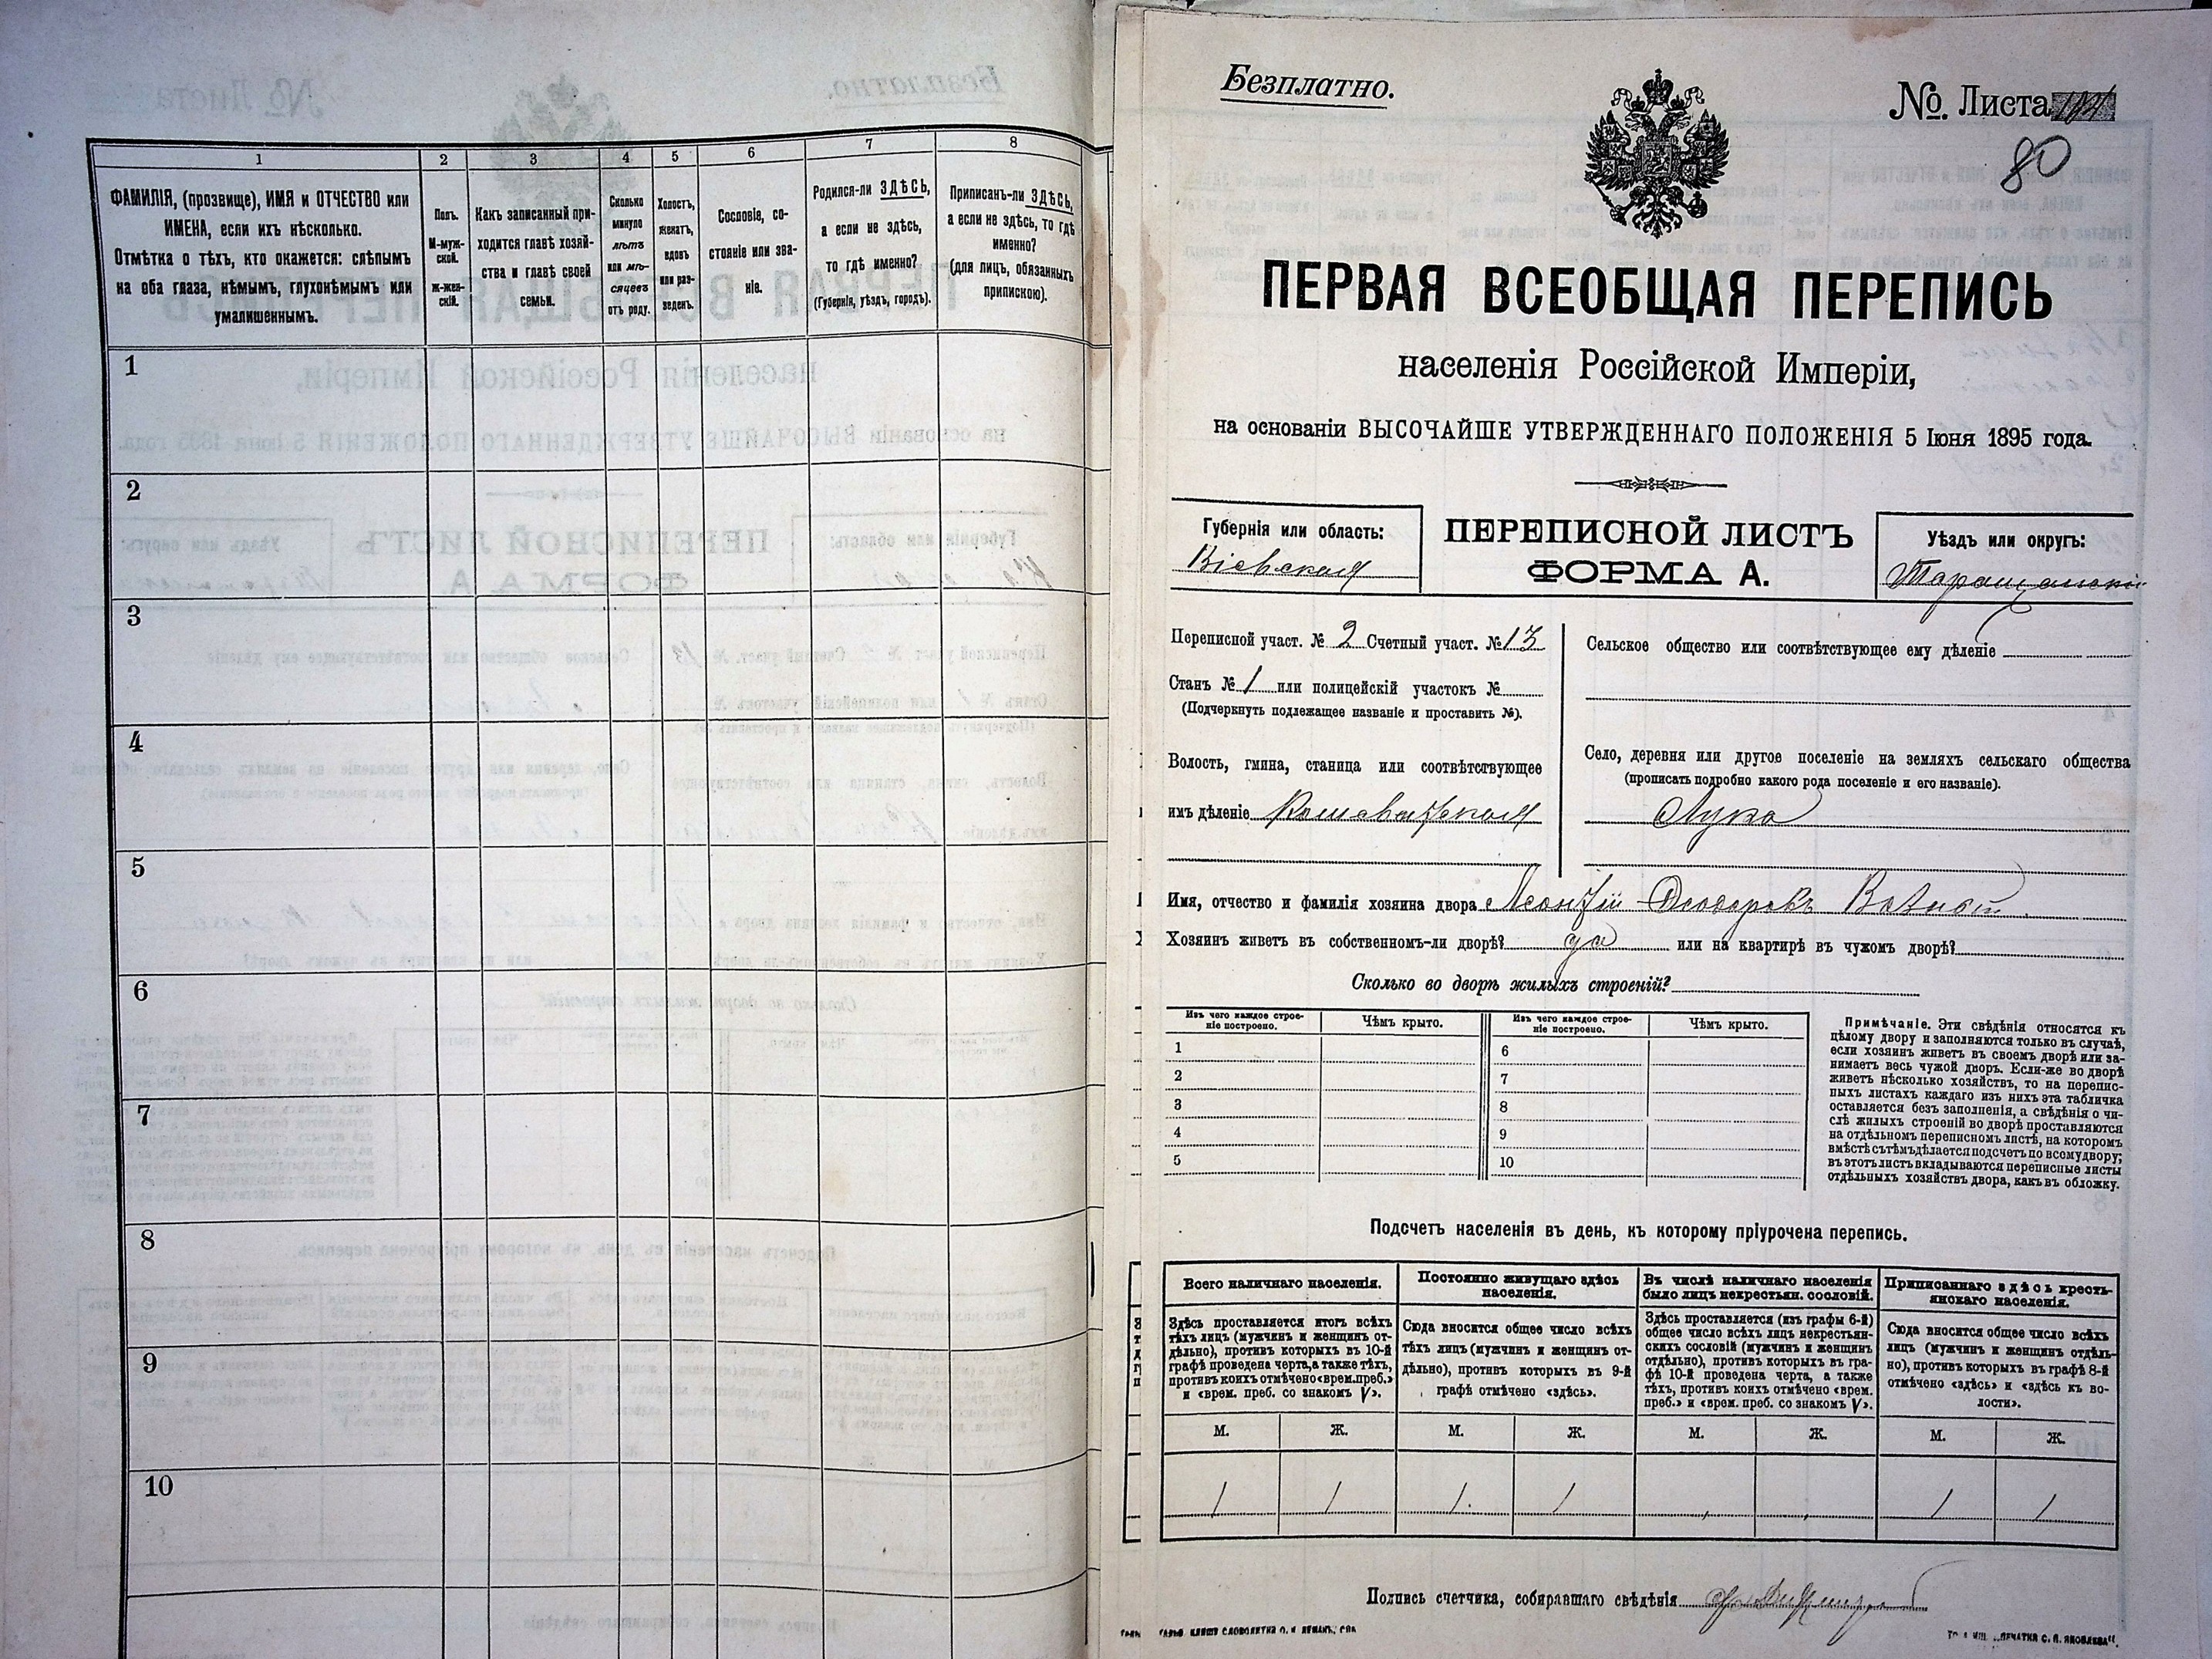 1
2
3
4
5
6
7
8
ФАМИЛІЯ, (прозвище), ИМЯ и ОТЧЕСТВО или
ИМЕНА, если ихъ нѣсколько.
Отмѣтка о тѣхъ, кто окажется: слѣпымъ
на оба глаза, нѣмымъ, глухонѣмымъ или
умалишеннымъ.
Полъ.
М-муж-
ской.
ж-жен-
скій.
Какъ записанный при-
ходится главѣ хозяй-
ства и главѣ своей
семьи.
Сколько
минуло
лѣтъ
или мѣ-
сяцевъ
отъ роду.
Холостъ,
женатъ,
вдовъ
или раз-
веденъ.
Сословіе, со-
стояніе или зва-
ніе.
Родился-ли ЗДѢСЬ,
а если не здѣсь,
то гдѣ именно?
(Губернія, уѣздъ, городъ).
Приписанъ-ли ЗДѢСЬ,
а если не здѣсь, то гдѣ
именно?
(для лицъ, обязанныхъ
припискою).
1
2
3
4
5
6
7
8
9
10
Безплатно.
№. Листа
80
ПЕРВАЯ ВСЕОБЩАЯ ПЕРЕПИСЬ
населенія Россійской Имперіи,
на основаніи ВЫСОЧАЙШЕ УТВЕРЖДЕННАГО ПОЛОЖЕНІЯ 5 Іюня 1895 года.
Губернія или область:
Кіевская
ПЕРЕПИСНОЙ ЛИСТЪ
ФОРМА А.
Уѣздъ или округъ:
Таращанскій
Переписной участ. № 2 Счетный участ. № 13
Станъ № 1 или полицейскій участокъ №
(Подчеркнуть подлежащее названіе и проставить №).
Волость, гмина, станица или соотвѣтствующее
имъ дѣленіе Кошеватская
Сельское общество или соотвѣтствующее ему дѣленіе
Село, деревня или другое поселеніе на земляхъ сельскаго общества
(прописать подробно какого рода поселеніе и его названіе).
Лука
Имя, отчество и фамилія хозяина двора Леонтій Феодоровъ
Хозяинъ живетъ въ собственномъ-ли дворѣ? да или на квартирѣ въ чужомъ дворѣ?
Сколько во дворѣ жилыхъ строеній?
Изъ чего каждое строе-
ніе построено.
Чѣмъ крыто.
Изъ чего каждое строе-
ніе построено.
Чѣмъ крыто.
1
2
3
4
5
6
7
8
9
10
Примѣчаніе. Эти свѣдѣнія относятся къ
цѣлому двору и заполняются только въ случаѣ,
если хозяинъ живетъ въ своемъ дворѣ или за-
нимаетъ весь чужой дворъ. Если-же во дворѣ
живетъ нѣсколько хозяйствъ, то на перепис-
ныхъ листахъ каждаго изъ нихъ эта табличка
оставляется безъ заполненія, а свѣдѣнія о чи-
слѣ жилыхъ строеній во дворѣ проставляются
на отдѣльномъ переписномъ листѣ, на которомъ
вмѣстѣ съ тѣмъ дѣлается подсчетъ по всему двору;
въ этотъ листъ вкладываются переписные листы
отдѣльныхъ хозяйствъ двора, какъ въ обложку.
Подсчетъ населенія въ день, къ которому пріурочена перепись.
Всего наличнаго населенія.
Здѣсь проставляется итогъ всѣхъ
тѣхъ лицъ (мужчинъ и женщинъ от-
дѣльно), противъ которыхъ въ 10-й
графѣ проведена черта, а также тѣхъ,
противъ коихъ отмѣчено «врем. преб.»
и «врем. преб. со знакомъ V».
Постоянно живущаго здѣсь
населенія.
Сюда вносится общее число всѣхъ
тѣхъ лицъ (мужчинъ и женщинъ от-
дѣльно), противъ которыхъ въ 9-й
графѣ отмѣчено «здѣсь».
Въ числѣ наличнаго населенія
было лицъ некрестьян. сословій.
Здѣсь проставляется (изъ графы 6-й)
общее число всѣхъ лицъ некрестьян-
скихъ сословій (мужчинъ и женщинъ
отдѣльно), противъ которыхъ въ гра-
фѣ 10-й проведена черта, а также
тѣхъ, противъ коихъ отмѣчено «врем.
преб.» и «врем. преб. со знакомъ V».
Приписаннаго здѣсь кресть-
янскаго населенія.
Сюда вносится общее число всѣхъ
лицъ (мужчинъ и женщинъ отдѣль-
но), противъ которыхъ въ графѣ 8-й
отмѣчено «здѣсь» и «здѣсь къ во-
лости».
М. Ж. М. Ж. М. Ж. М. Ж.
1 1 1 1 1 1
Подпись счетчика, собиравшаго свѣдѣнія